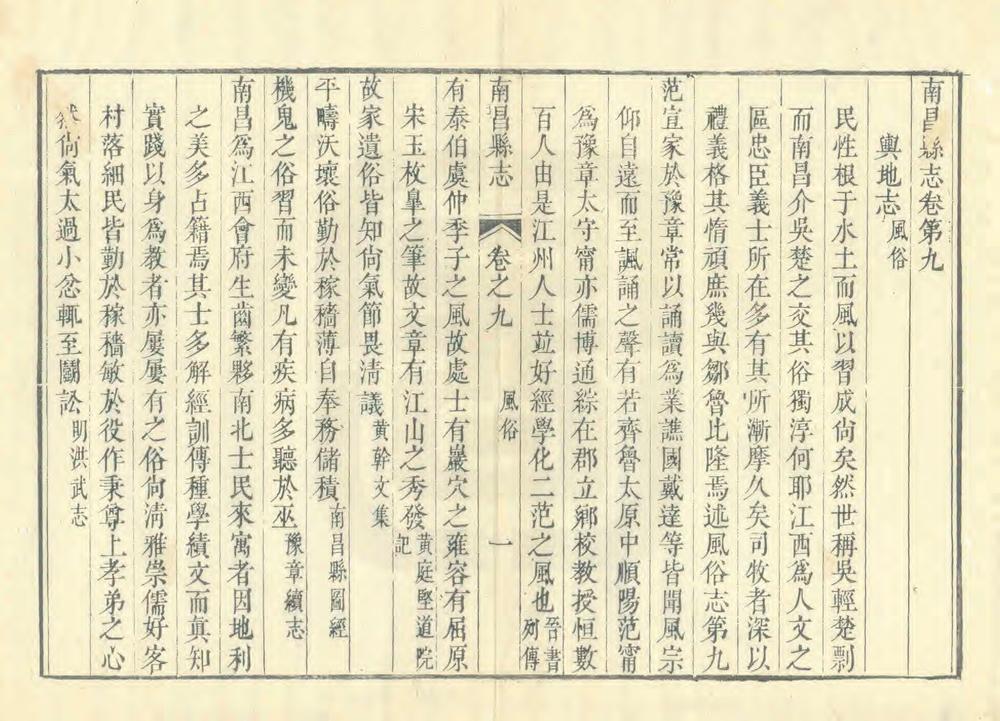 南昌縣志卷第九
輿地志 風俗
民性根于水土而風以習成尙矣然世稱吳輕楚剽
而南昌介吳楚之交其俗獨淳何耶江西爲人文之
區忠臣義士所在多有其所漸摩久矣司牧者深以
禮義格其惰頑庶幾與鄒魯比隆焉述風俗志第九
范宣家於豫章常以誦讀爲業譙國戴逵等皆聞風宗
仰自遠而至諷誦之聲有若齊魯太原中順陽范甯
爲豫章太守甯亦儒博通綜在郡立鄉校教授恒數
百人由是江州人士竝好經學化二范之風也 晉書列傳
南昌縣志 卷之九 風俗 一
有泰伯虞仲季子之風故處士有巖穴之雍容有屈原
宋玉枚臯之筆故文章有江山之秀發 黃庭堅道院記
故家遺俗皆知尙氣節畏淸議 黃幹文集
平疇沃壤俗勤於稼穡薄自奉務儲積 南昌縣圖經
機鬼之俗習而未變凡有疾病多聽於巫 豫章續志
南昌爲江西會府生齒繁夥南北士民來寓者因地利
之美多占籍焉其士多解經訓傳種學績文而眞知
實踐以身爲教者亦屢屢有之俗尙淸雅崇儒好客
村落細民皆勤於稼穡敏於役作秉尊上孝弟之心
然尙氣太過小忿輒至鬭訟 明洪武志